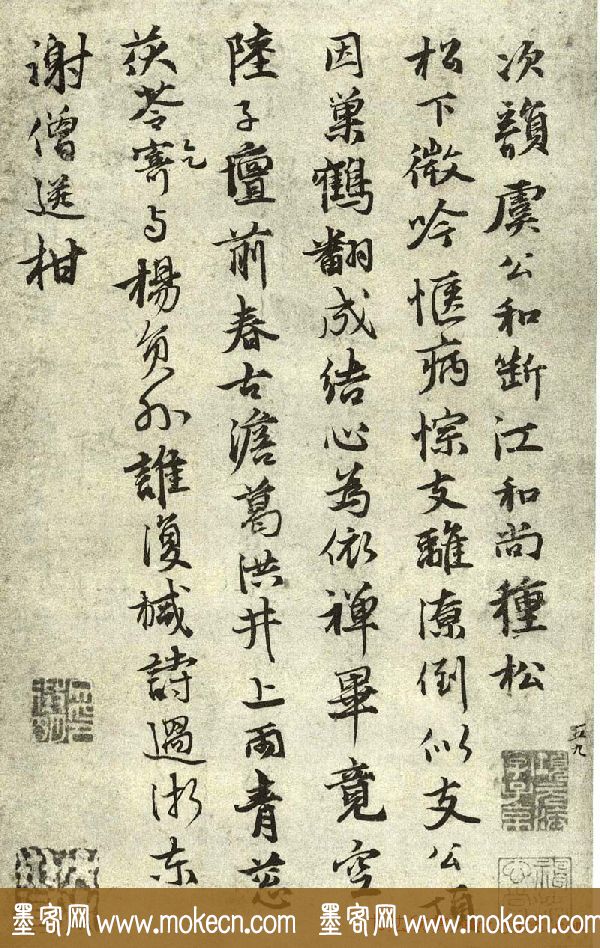 次韻虞公和斷江和尚種松
松下微吟愜病悰支離潦倒似支公頂
因巢鶴翻成結心為依禪畢竟空
陸子壇前春古澹葛洪井上雨青蔥
茯苓乞寄与楊負外誰復緘詩過浙东
謝僧送柑
五九
墨客网 www.mokecn.com 墨客网 www.mokecn.com